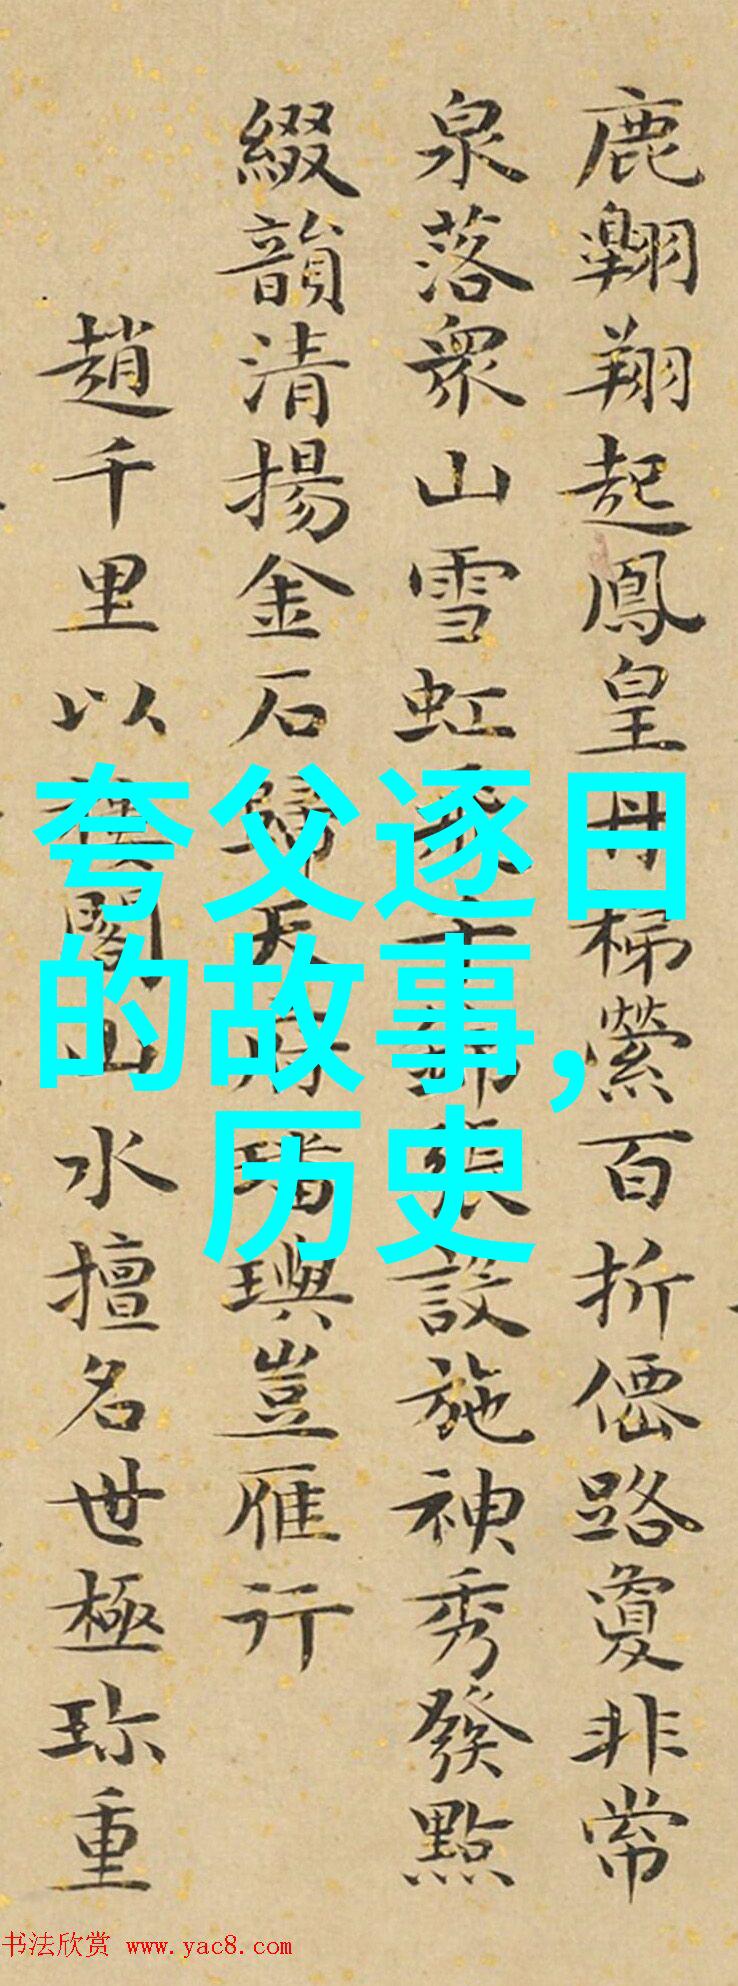 鹿翱翔起鳳皇丹梯縈百折僊路夐非常
泉落衆山雪虹張設施神秀發點
綴韻清揚金石歸天府璠璵豈雁行
趙千里以樓閣山水擅名世極珎重
夸父逐日
的故事,
历史
书法欣赏 www.yac8.com